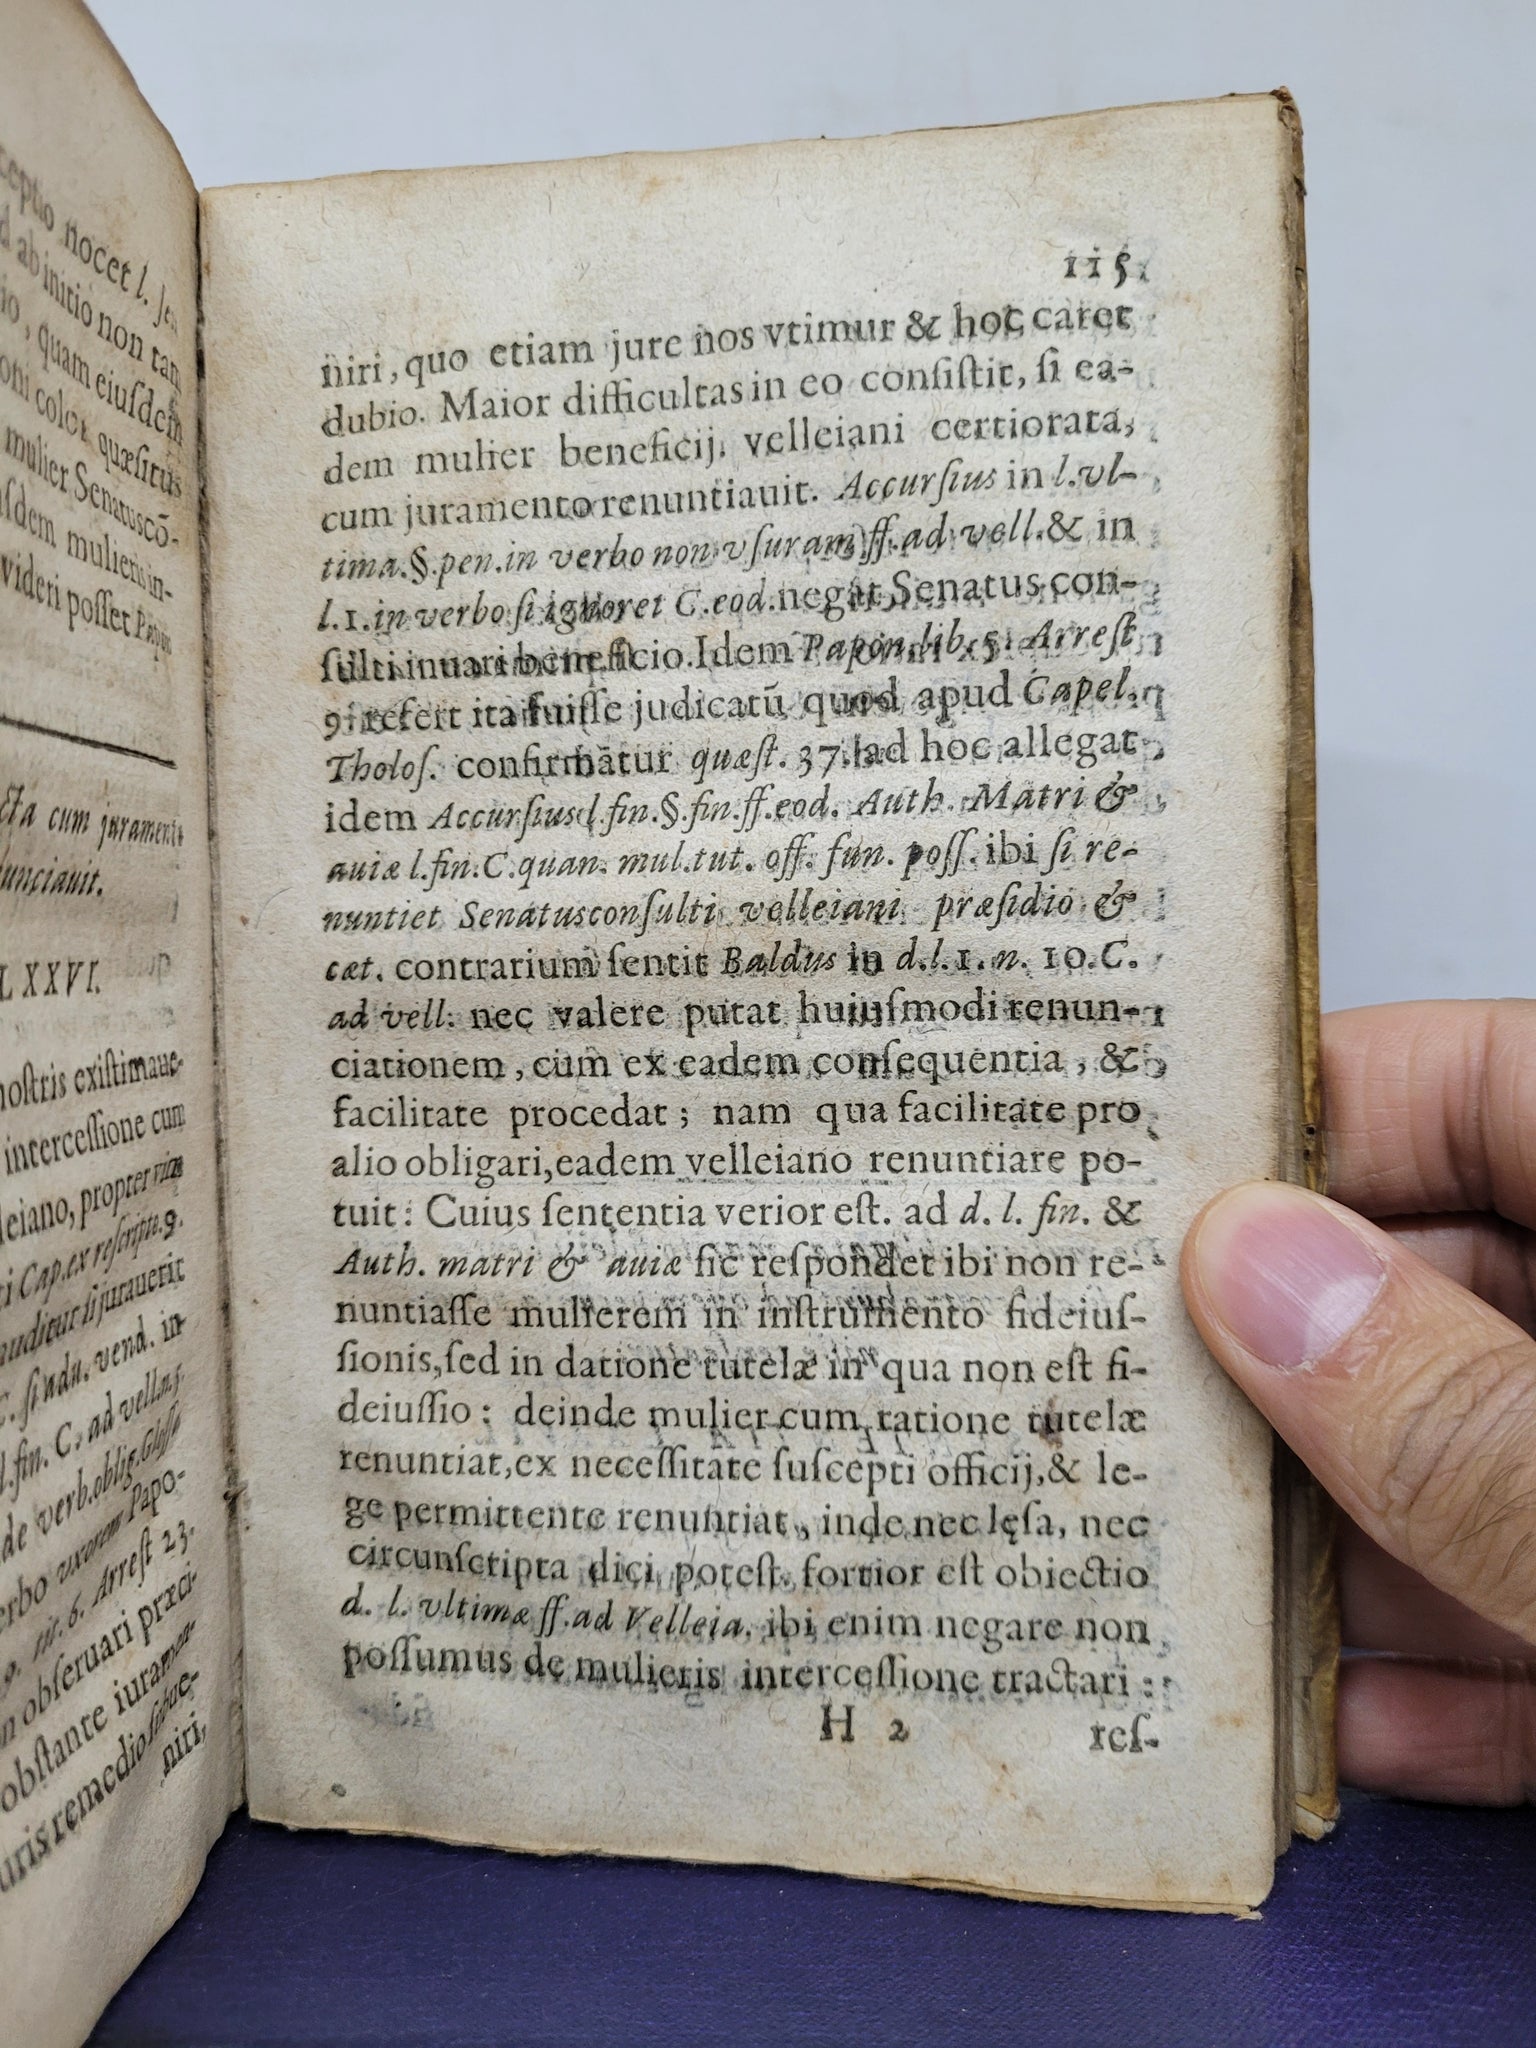 ceptio nocet l.
ab initio non tam
io, quam eiuſdem
color quæſitus
mulier Senatuscō-
ſdem mulieris in-
videri poſſet Papon
cta cum juramento
nunciauit.
LXXVI.
noſtris exiſtimaue-
interceſſione cum
leiano, propter vim
Cap. ex reſcripto. 9.
auditur ſi jurauerit
C. ſi adu. vend. in
l. fin. C. ad vell. n. 5.
de verb. oblig. Gloſſa
verbo uxorem Papo-
9. tit. 6. Arreſt 23.
n obſeruari præci-
obſtante iuramen-
uris remedio ſubue-
niri,
115.
niri, quo etiam jure nos vtimur & hoc caret
dubio. Maior difficultas in eo conſiſtit, ſi ea-
dem mulier beneficij velleiani certiorata,
cum juramento renuntiauit. Accurſius in l. vl-
tima. §. pen. in verbo non vſuram ff. ad vell. & in
l. 1. in verbo ſi ignoret C. eod. negat Senatus con-
ſulti inuari beneficio. Idem Papon. lib. 5. Arreſt
9. refert ita fuiſſe judicatū quod apud Capel.
Tholoſ. confirmātur quæſt. 37. ad hoc allegat
idem Accurſius l. fin. §. fin. ff. eod. Auth. Matri &
auiæ l. fin. C. quan. mul. tut. off. fun. poſſ. ibi ſi re-
nuntiet Senatusconſulti velleiani præſidio &
cæt. contrarium ſentit Baldus in d. l. 1. n. 10. C.
ad vell. nec valere putat huiuſmodi renun-
ciationem, cum ex eadem conſequentia, &
facilitate procedat; nam qua facilitate pro
alio obligari, eadem velleiano renuntiare po-
tuit: Cuius ſententia verior eſt. ad d. l. fin. &
Auth. matri & auiæ ſic reſpondet ibi non re-
nuntiaſſe mulierem in inſtrumento fideiuſ-
ſionis, ſed in datione tutelæ in qua non eſt fi-
deiuſſio: deinde mulier cum ratione tutelæ
renuntiat, ex neceſſitate ſuſcepti officij, & le-
ge permittente renuntiat, inde nec lęſa, nec
circunſcripta dici poteſt. fortior eſt obiectio
d. l. vltimæ ff. ad Velleia. ibi enim negare non
poſſumus de mulieris interceſſione tractari:
H 2
reſ-